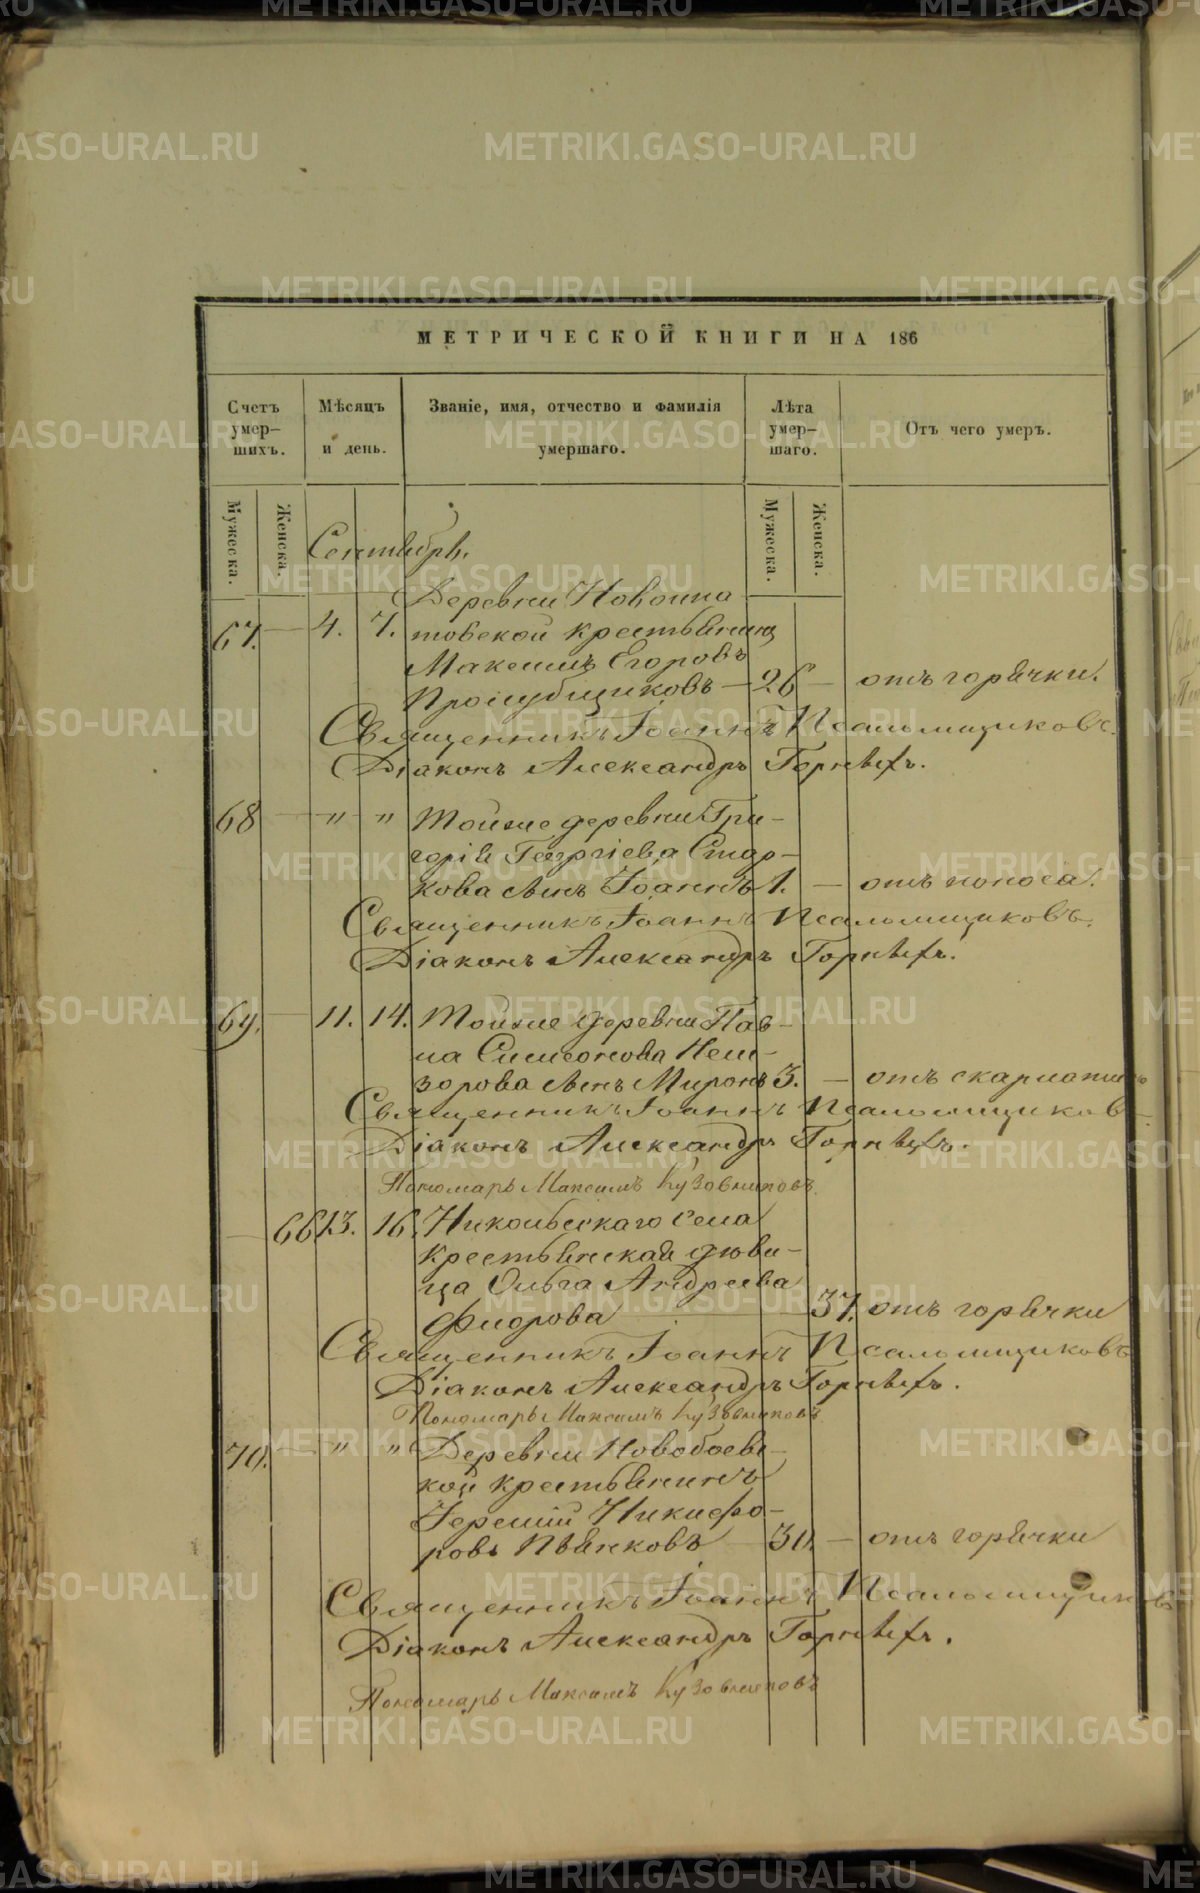 МЕТРИЧЕСКОЙ КНИГИ НА 186
Счетъ умер- шихъ.
Мѣсяцъ и день.
Званіе, имя, отчество и фамилія умершаго.
Лѣта умер- шаго.
Отъ чего умеръ.
Мужеска.
Женска.
Мужеска.
Женска.
Сентябрь.
Деревни Новоипа
67. — 4. 7. товской крестьянинъ
Максимъ Егоровъ
Пролубщиковъ — 26 — отъ горячки.
Священникъ Іоаннъ Псаломщиковъ.
Діаконъ Александръ Горныхъ.
68 — " " Тойже деревни Гри-
горія Георгіева
кова сынъ Іоаннъ 1. — отъ поноса.
Священникъ Іоаннъ Псаломщиковъ.
Діаконъ Александръ Горныхъ.
69. — 11. 14. Тойже деревни Пав-
ла Симеонова
сынъ Миронъ 3. — отъ
Священникъ Іоаннъ Псаломщиковъ
Діаконъ Александръ Горныхъ.
Пономарь Максимъ Кузовниковъ.
— 66 13. 16. Никольскаго села
крестьянская дѣви-
ца Ольга Андреева
— 37. отъ горячки
Священникъ Іоаннъ Псаломщиковъ
Діаконъ Александръ Горныхъ.
Пономарь Максимъ Кузовниковъ
70. — " " Деревни Новобаевс-
кой крестьянинъ
Іеремій Никифо-
ровъ Пьянковъ — 30. — отъ горячки
Священникъ Іоаннъ Псаломщиковъ
Діаконъ Александръ Горныхъ.
Пономарь Максимъ Кузовниковъ
METRIKI.GASO-URAL.RU